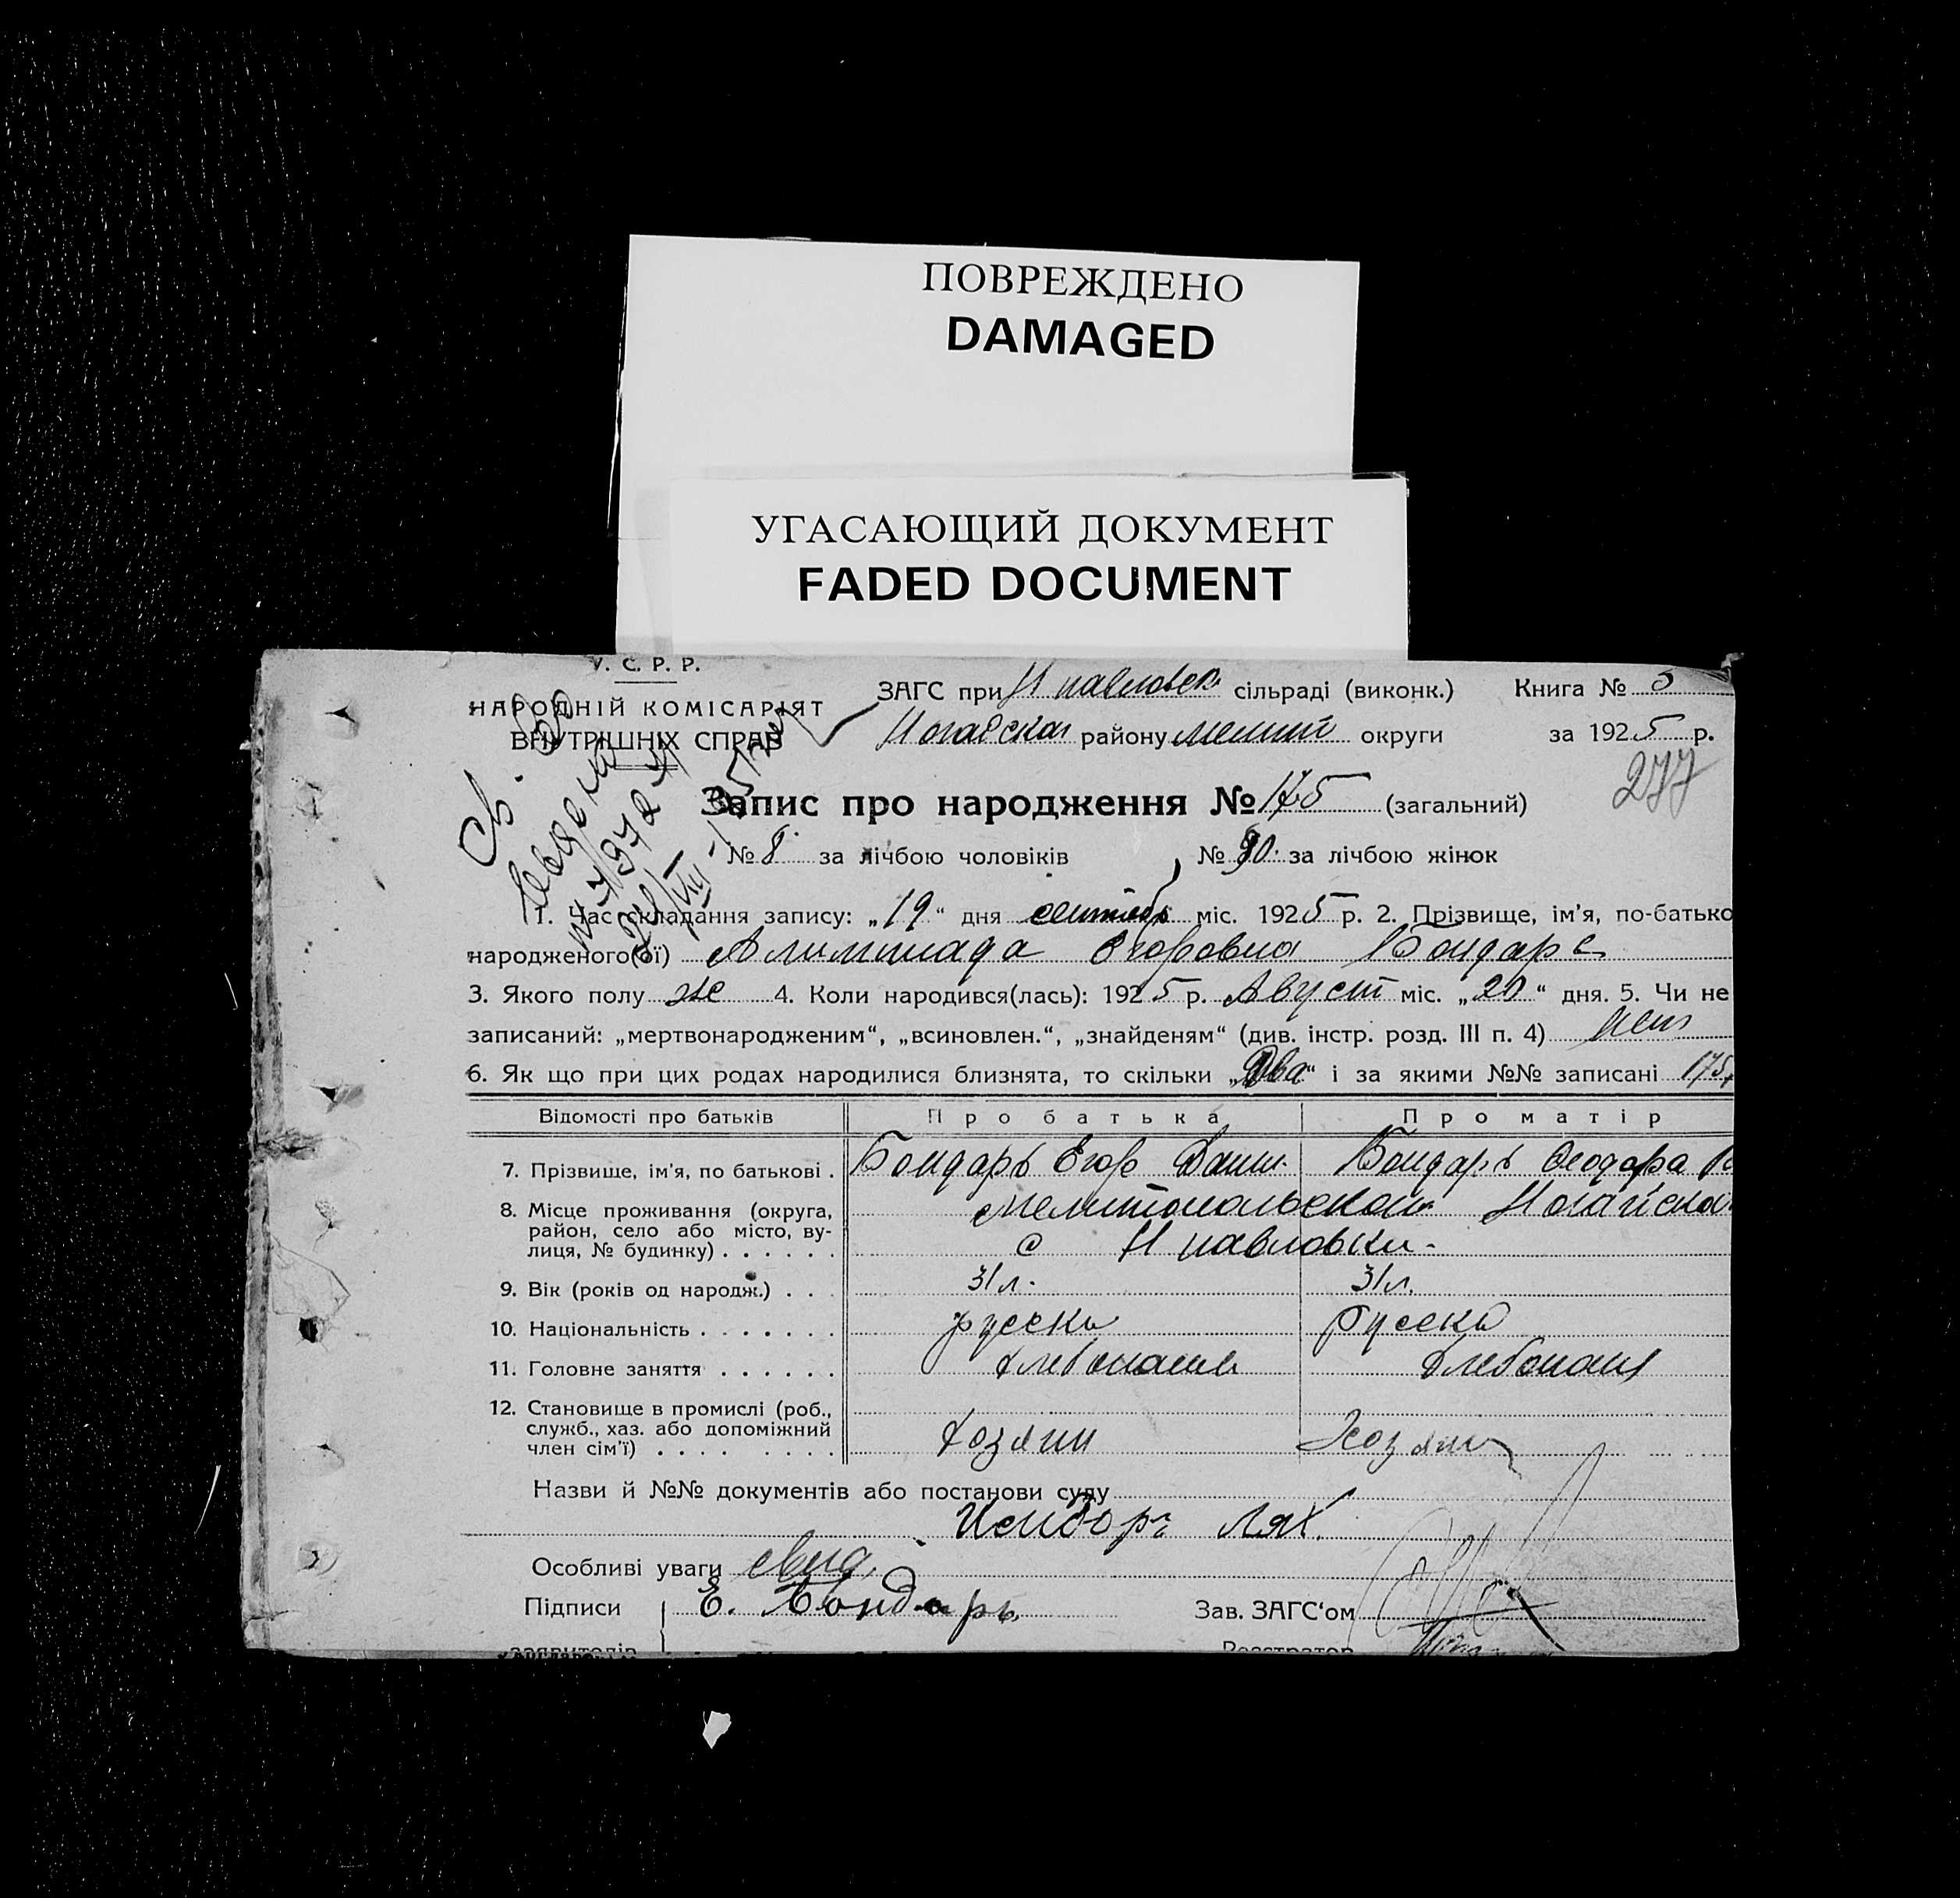 ПОВРЕЖДЕНО
DAMAGED
УГАСАЮЩИЙ ДОКУМЕНТ
FADED DOCUMENT
У. С. Р. Р.
НАРОДНІЙ КОМІСАРІЯТ
ВНУТРІШНІХ СПРАВ
ЗАГС при Н павловск сільраді (виконк.) Книга № 5
Ногайской району мелит округи за 1925 р.
277
Запис про народження № 175 (загальний)
№ 8 за лічбою чоловіків № 90 за лічбою жінок
1. Час складання запису: „19“ дня сентябр міс. 1925 р. 2. Прізвище, ім'я, по-батько
народженого(ої) Алимпиада Егоровна Бондарь
3. Якого полу же 4. Коли народився(лась): 1925 р. Август міс. „20“ дня. 5. Чи не
записаний: „мертвонародженим“, „всиновлен.“, „знайденям“ (див. інстр. розд. III п. 4) нет
6. Як що при цих родах народилися близнята, то скільки „Два“ і за якими №№ записані 175,
Відомості про батьків Про батька Про матір
7. Прізвище, ім'я, по батькові . Бондарь Егор Дани. Бондарь Феодора
8. Місце проживання (округа, мелитопольской Ногайской
район, село або місто, ву-
лиця, № будинку) . . . . . . с Н павловки.
9. Вік (років од народж.) . . . 31 л. 31 л.
10. Національність . . . . . . . русски Русски
11. Головне заняття . . . . . . хлебопаш хлебопаш
12. Становище в промислі (роб.,
служб., хаз. або допоміжний
член сім'ї) . . . . . . . . хозяин Хозяин
Назви й №№ документів або постанови суду
Исидоръ Лях.
Особливі уваги свид.
Підписи Е. Бондарь Зав. ЗАГС'ом
заявителів Реєстратор